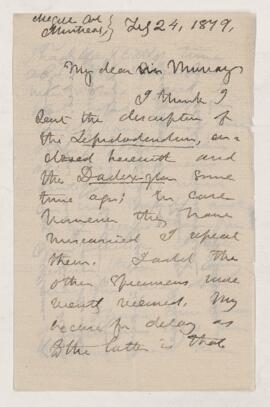 McGill Col
Montreal } Feb 24, 1879,
My dear Mr Murray
I think I
sent the description of
the Lepidodendron, en
closed herewith and
the Dadoxylon some
time ago; in case
however they have
miscarried I repeat
them. I add the
other specimens more
recently received. My
excuse for delay as
the latter is that